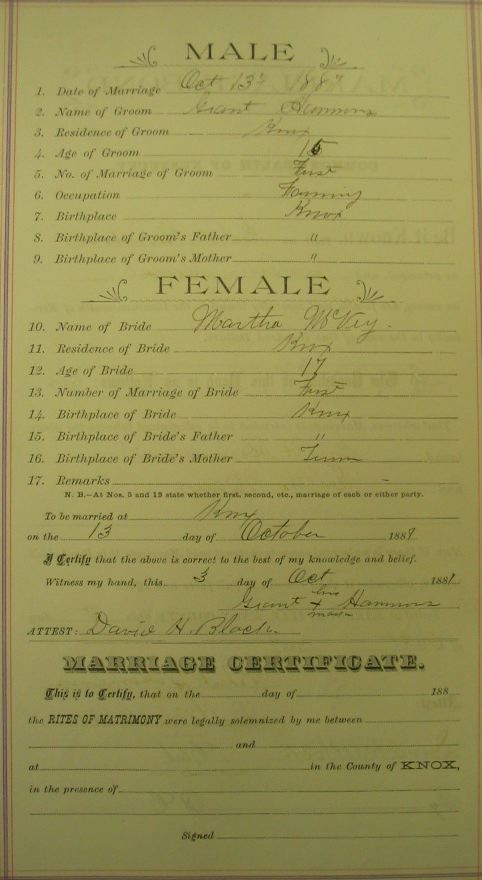 MALE
1. Date of Marriage Oct 13th 1887
2. Name of Groom Grant Hammons
3. Residence of Groom Knox
4. Age of Groom
5. No. of Marriage of Groom First
6. Occupation Farming
7. Birthplace Knox
8. Birthplace of Groom's Father "
9. Birthplace of Groom's Mother "
FEMALE
10. Name of Bride Martha McVey.
11. Residence of Bride Knox
12. Age of Bride 17
13. Number of Marriage of Bride First
14. Birthplace of Bride Knox
15. Birthplace of Bride's Father "
16. Birthplace of Bride's Mother Tenn
17. Remarks
N. B.—At Nos. 5 and 13 state whether first, second, etc., marriage of each or either party.
To be married at Knox
on the 13 day of October 1887
I Certify that the above is correct to the best of my knowledge and belief.
Witness my hand, this 3 day of Oct 1887
his
Grant + Hammons
mark
ATTEST: David H. Black
MARRIAGE CERTIFICATE.
This is to Certify, that on the day of 188
the RITES OF MATRIMONY were legally solemnized by me between
and
at in the County of KNOX,
in the presence of
Signed